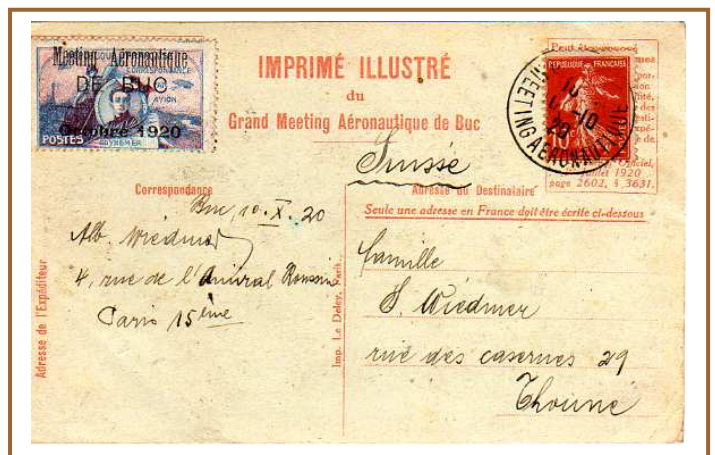 Meeting Aéronautique
DE BUC
CORRESPONDANCE
AVION
Octobre 1920
POSTES
GUYNEMER
IMPRIMÉ ILLUSTRÉ
du
Grand Meeting Aéronautique de Buc
REPUBLIQUE FRANÇAISE
10
10
20
MEETING AERONAUTIQUE
10
Peut être
Officiel,
Juillet 1920
page 2602, § 3631.
Suisse
Correspondance
Adresse du Destinataire
Seule une adresse en France doit être écrite ci-dessous
Buc, 10.X.20
Alb. Wiedmer
4, rue de l'Amiral Roussin
Paris 15ème
Adresse de l'Expéditeur
Imp. Le Deley, Paris.
Famille
S. Wiedmer
rue des casernes 29
Thoune